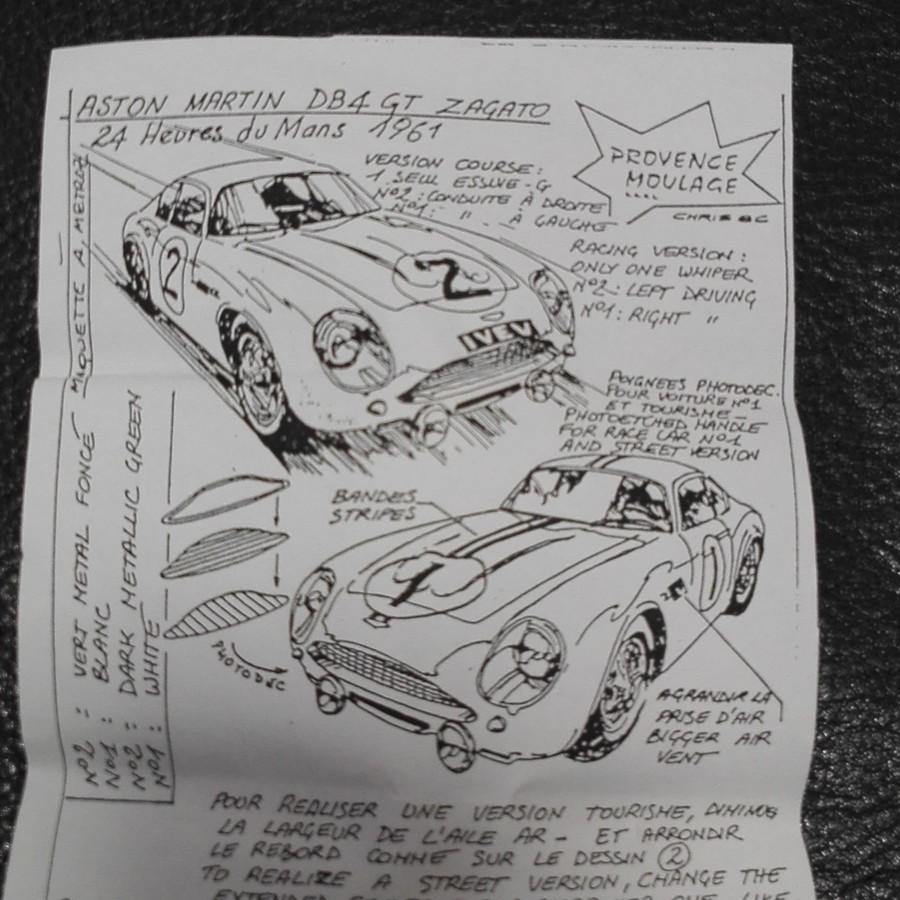 ASTON MARTIN DB4 GT ZAGATO
24 Heures du Mans 1961
PROVENCE
MOULAGE
VERSION COURSE:
1 SEUL ESSUIE-G
N°2: CONDUITE À DROITE
N°1: " À GAUCHE
RACING VERSION:
ONLY ONE WHIPER
N°2: LEFT DRIVING
N°1: RIGHT "
MAQUETTE A.
2
2
1VEV
POIGNEES PHOTODEC.
POUR VOITURE N°1
ET TOURISME-
PHOTOETCHED HANDLE
FOR RACE CAR N°1
AND STREET VERSION
BANDES
STRIPES
1
1
PHOTODEC
AGRANDIR LA
PRISE D'AIR
BIGGER AIR
VENT
N°2 : VERT METAL FONCÉ
N°1 : BLANC
N°2 : DARK METALLIC GREEN
N°1 : WHITE
POUR REALISER UNE VERSION TOURISME,
LA LARGEUR DE L'AILE AR- ET ARRONDIR
LE REBORD COMME SUR LE DESSIN 2
TO REALIZE A STREET VERSION, CHANGE THE
EXTENDED